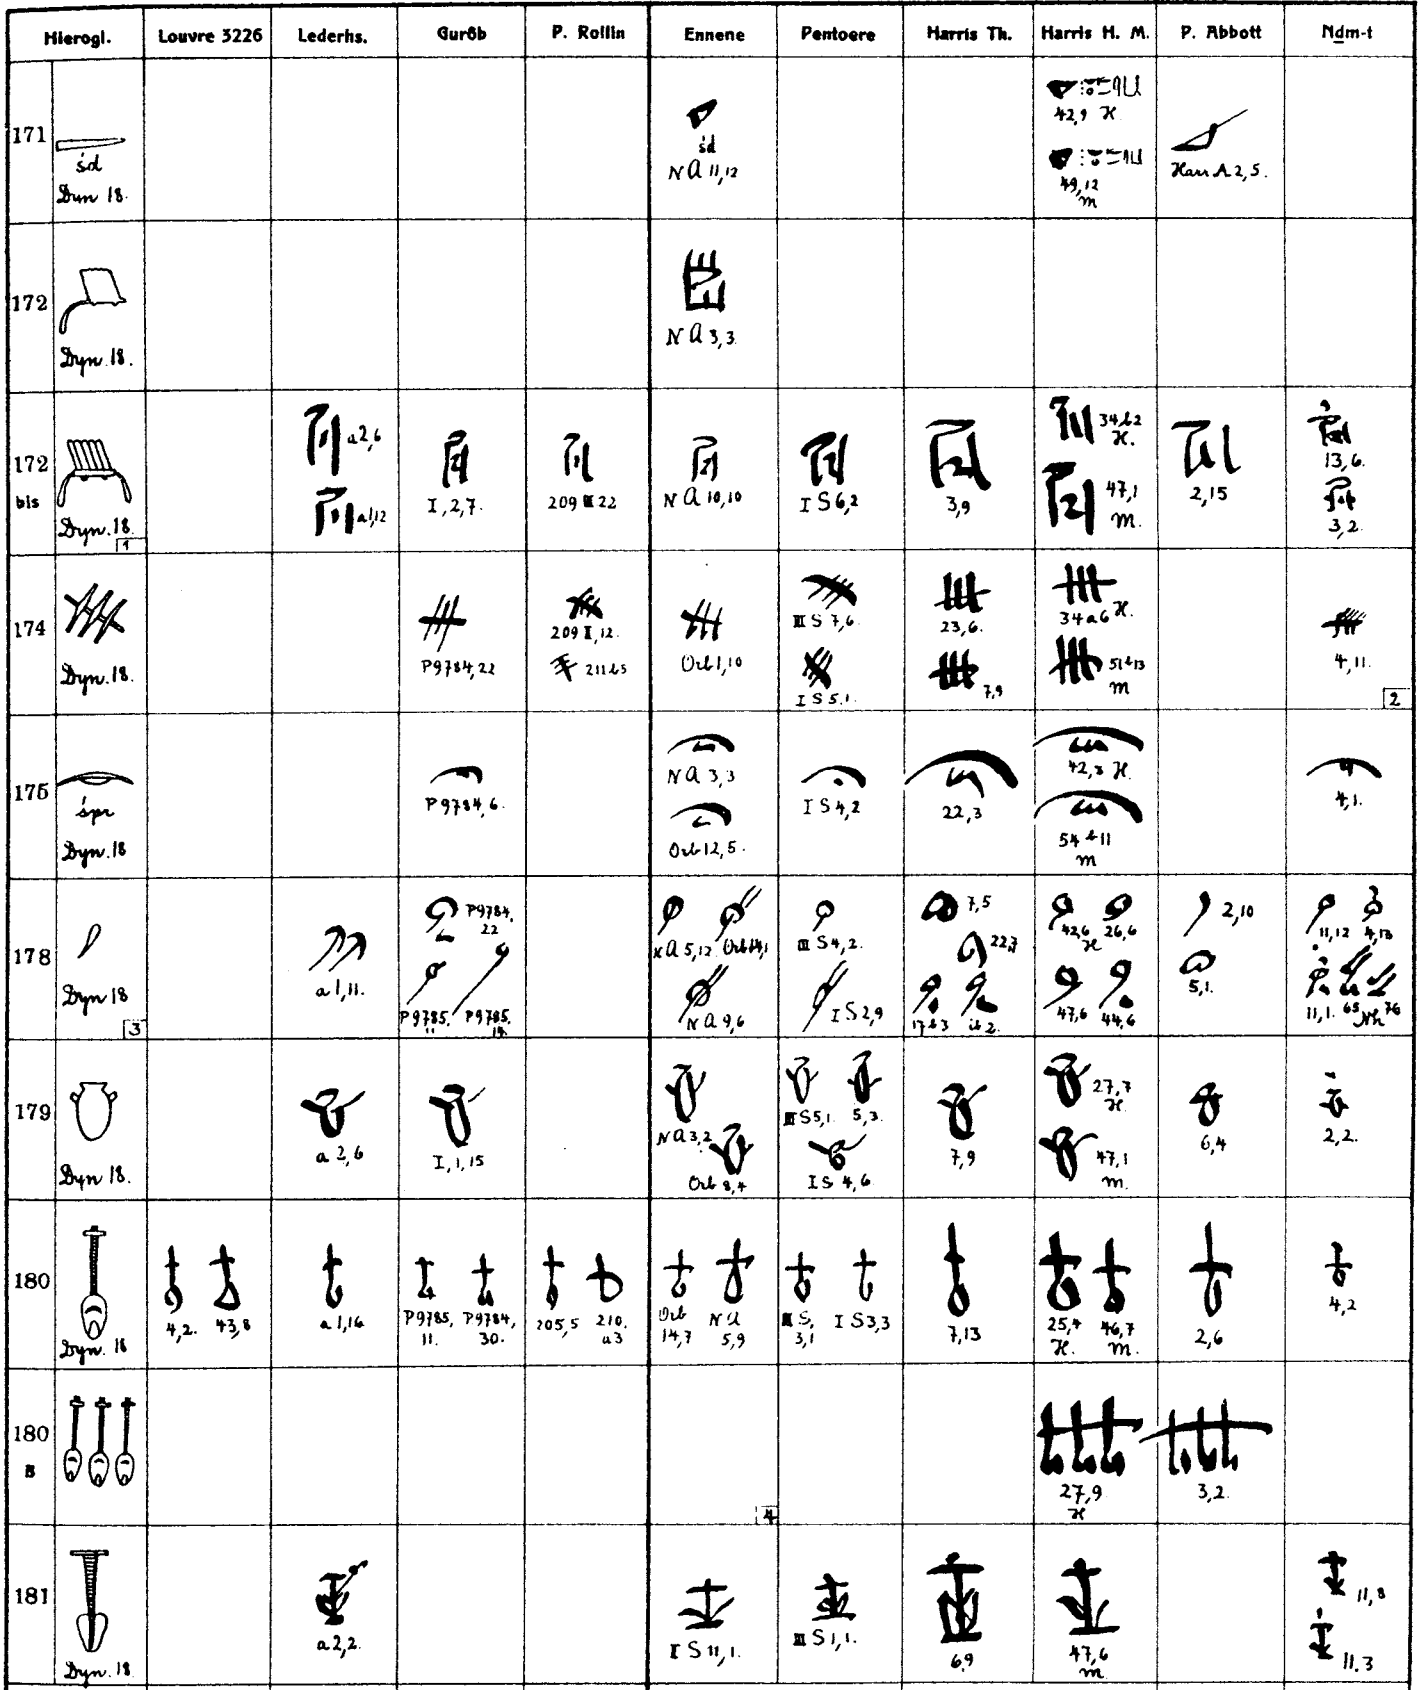 Hierogl. Louvre 3226 Lederhs. Gurôb P. Rollin Ennene Pentoere Harris Th. Harris H. M. P. Abbott Nḏm-t
171
śd
Dyn 18.
śd
N A 11,12
42,9 H.
49,12
m
Harr A 2,5.
172
Dyn. 18.
N A 3,3.
172
bis
Dyn. 18.
1
a 2,6
a 1,12
I, 2, 7.
209 III 22
N A 10,10
I S 6,2
3,9
34 b 2
H.
47,1
m.
2,15
13,6.
3,2.
174
Dyn. 18.
P 9784, 22
209 I, 12.
211 b 5
Orb 1,10
III S 7,6.
I S 5,1.
23,6.
7,9
34 a 6 H.
51 b 13
m
4,11.
2
175
śpr
Dyn. 18
P 9784, 6.
N A 3,3
Orb 12,5.
I S 4,2
22,3
42,8 H.
54 b 11
m
4,1.
178
Dyn 18
3
a 1,11.
P 9784,
22
P 9785,
11
P 9785,
14.
N A 5,12 Orb 14,1
N A 9,6
III S 4,2.
I S 2,9
7,5
22,7
17 b 3
42,6
H
26,6
47,6 44,6
2,10
5,1.
11,12 4,13
11,1. 65 Nh 76
179
Dyn 18.
a 2,6
I, 1, 15
N A 3,2
Orb 8,4
III S 5,1. 5,3.
I S 4,6
7,9
27,7
H.
47,1
m.
6,4
2,2.
180
Dyn. 18
4,2. 43,8
a 1,16
P 9785,
11.
P 9784,
30.
205,5 210,
a 3
Orb
14,7
N A
5,9
III S,
3,1
I S 3,3
7,13
25,4
H.
46,7
m.
2,6
4,2
180
B
4
27,9.
H
3,2.
181
Dyn. 18
a 2,2.
I S 11,1.
III S 1,1.
6,9
47,6
m.
11,8
11.3